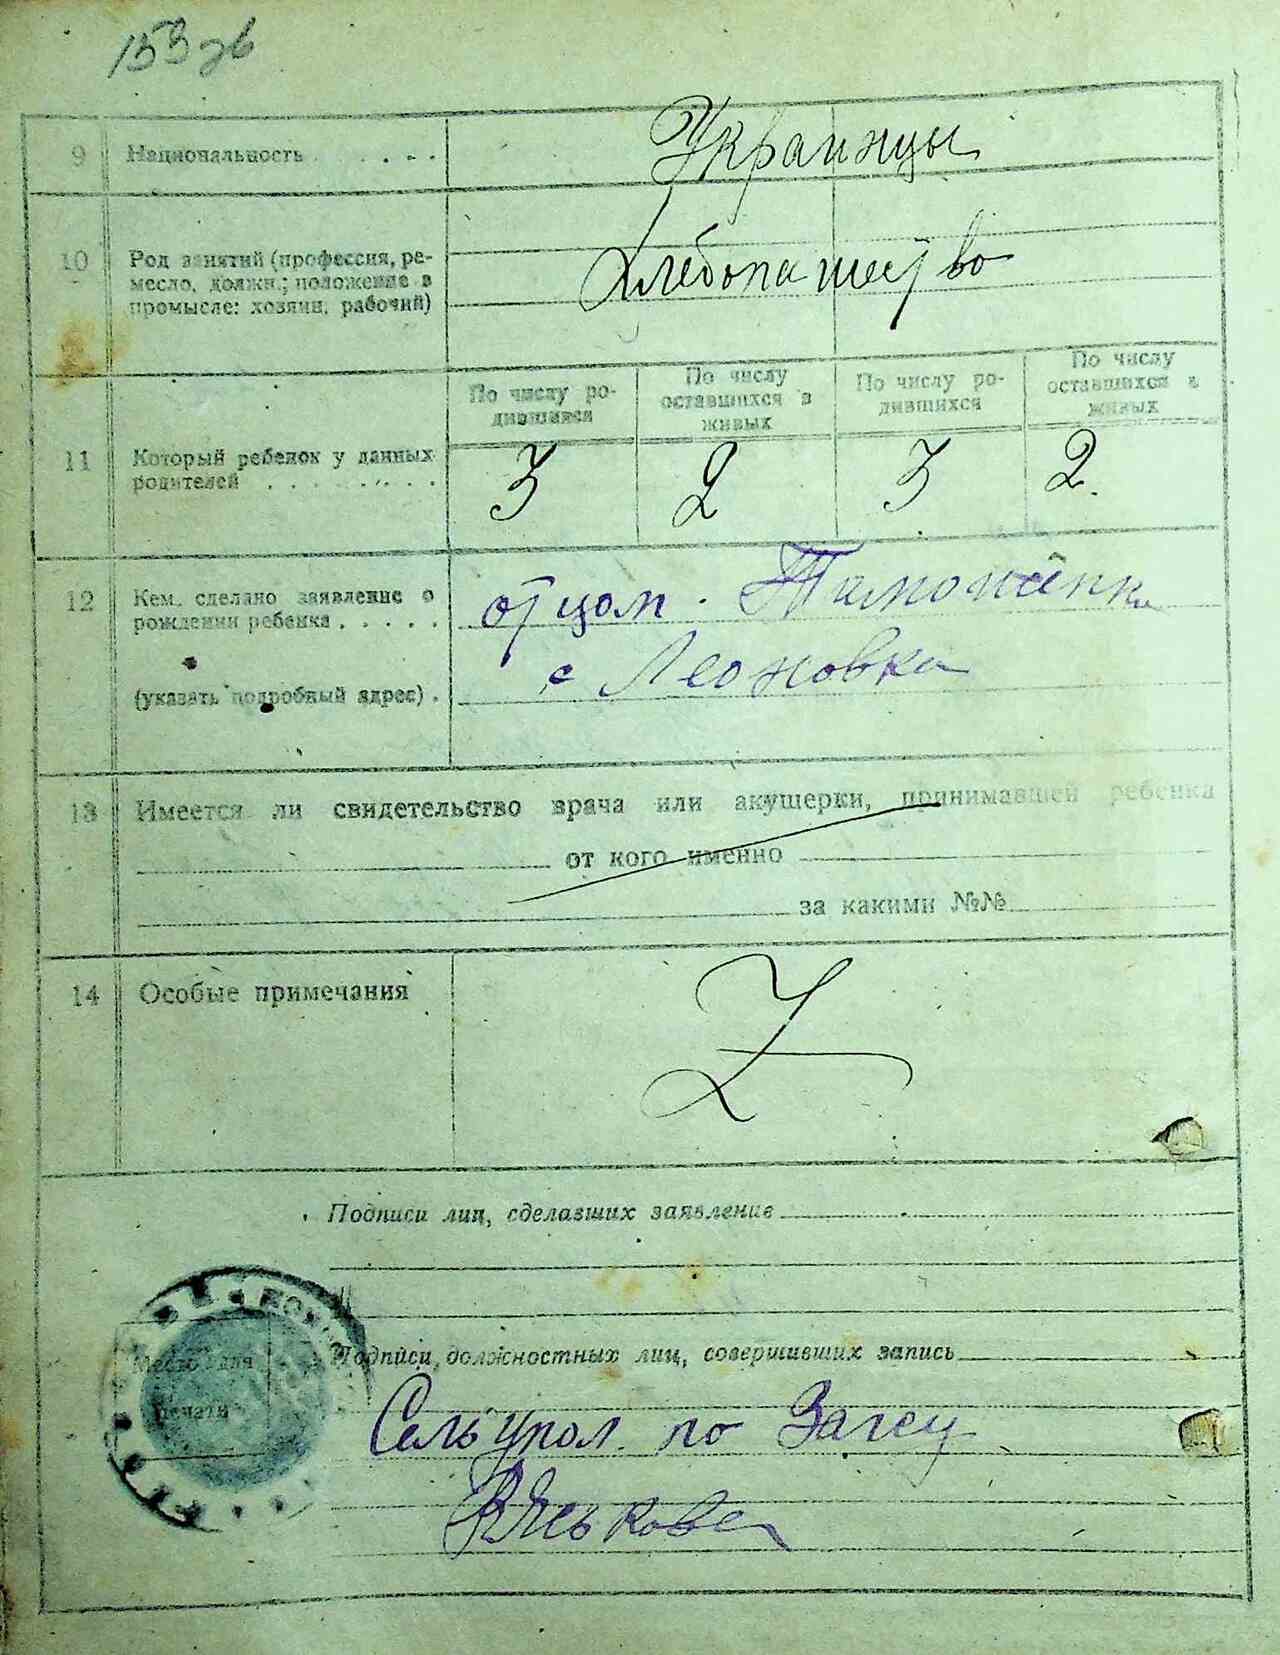 153 об
Украинцы
9 Национальность . . . . .
Хлебопашество
10 Род занятий (профессия, ре-
месло, должн.; положение в
промысле: хозяин, рабочий)
По числу ро-
дившихся
По числу
оставшихся в
живых
По числу ро-
дившихся
По числу
оставшихся в
живых
11 Который ребенок у данных
родителей . . . . . . . .
3 2 3 2.
12 Кем сделано заявление о
рождении ребенка . . . . .
(указать подробный адрес) .
отцом.
с Леоновка
13 Имеется ли свидетельство врача или акушерки, принимавшей ребенка
от кого именно
за какими №№
14 Особые примечания
Z
Подписи лиц, сделавших заявление
Место для
печати
Подписи должностных лиц, совершивших запись
Сельупол. по Загсу